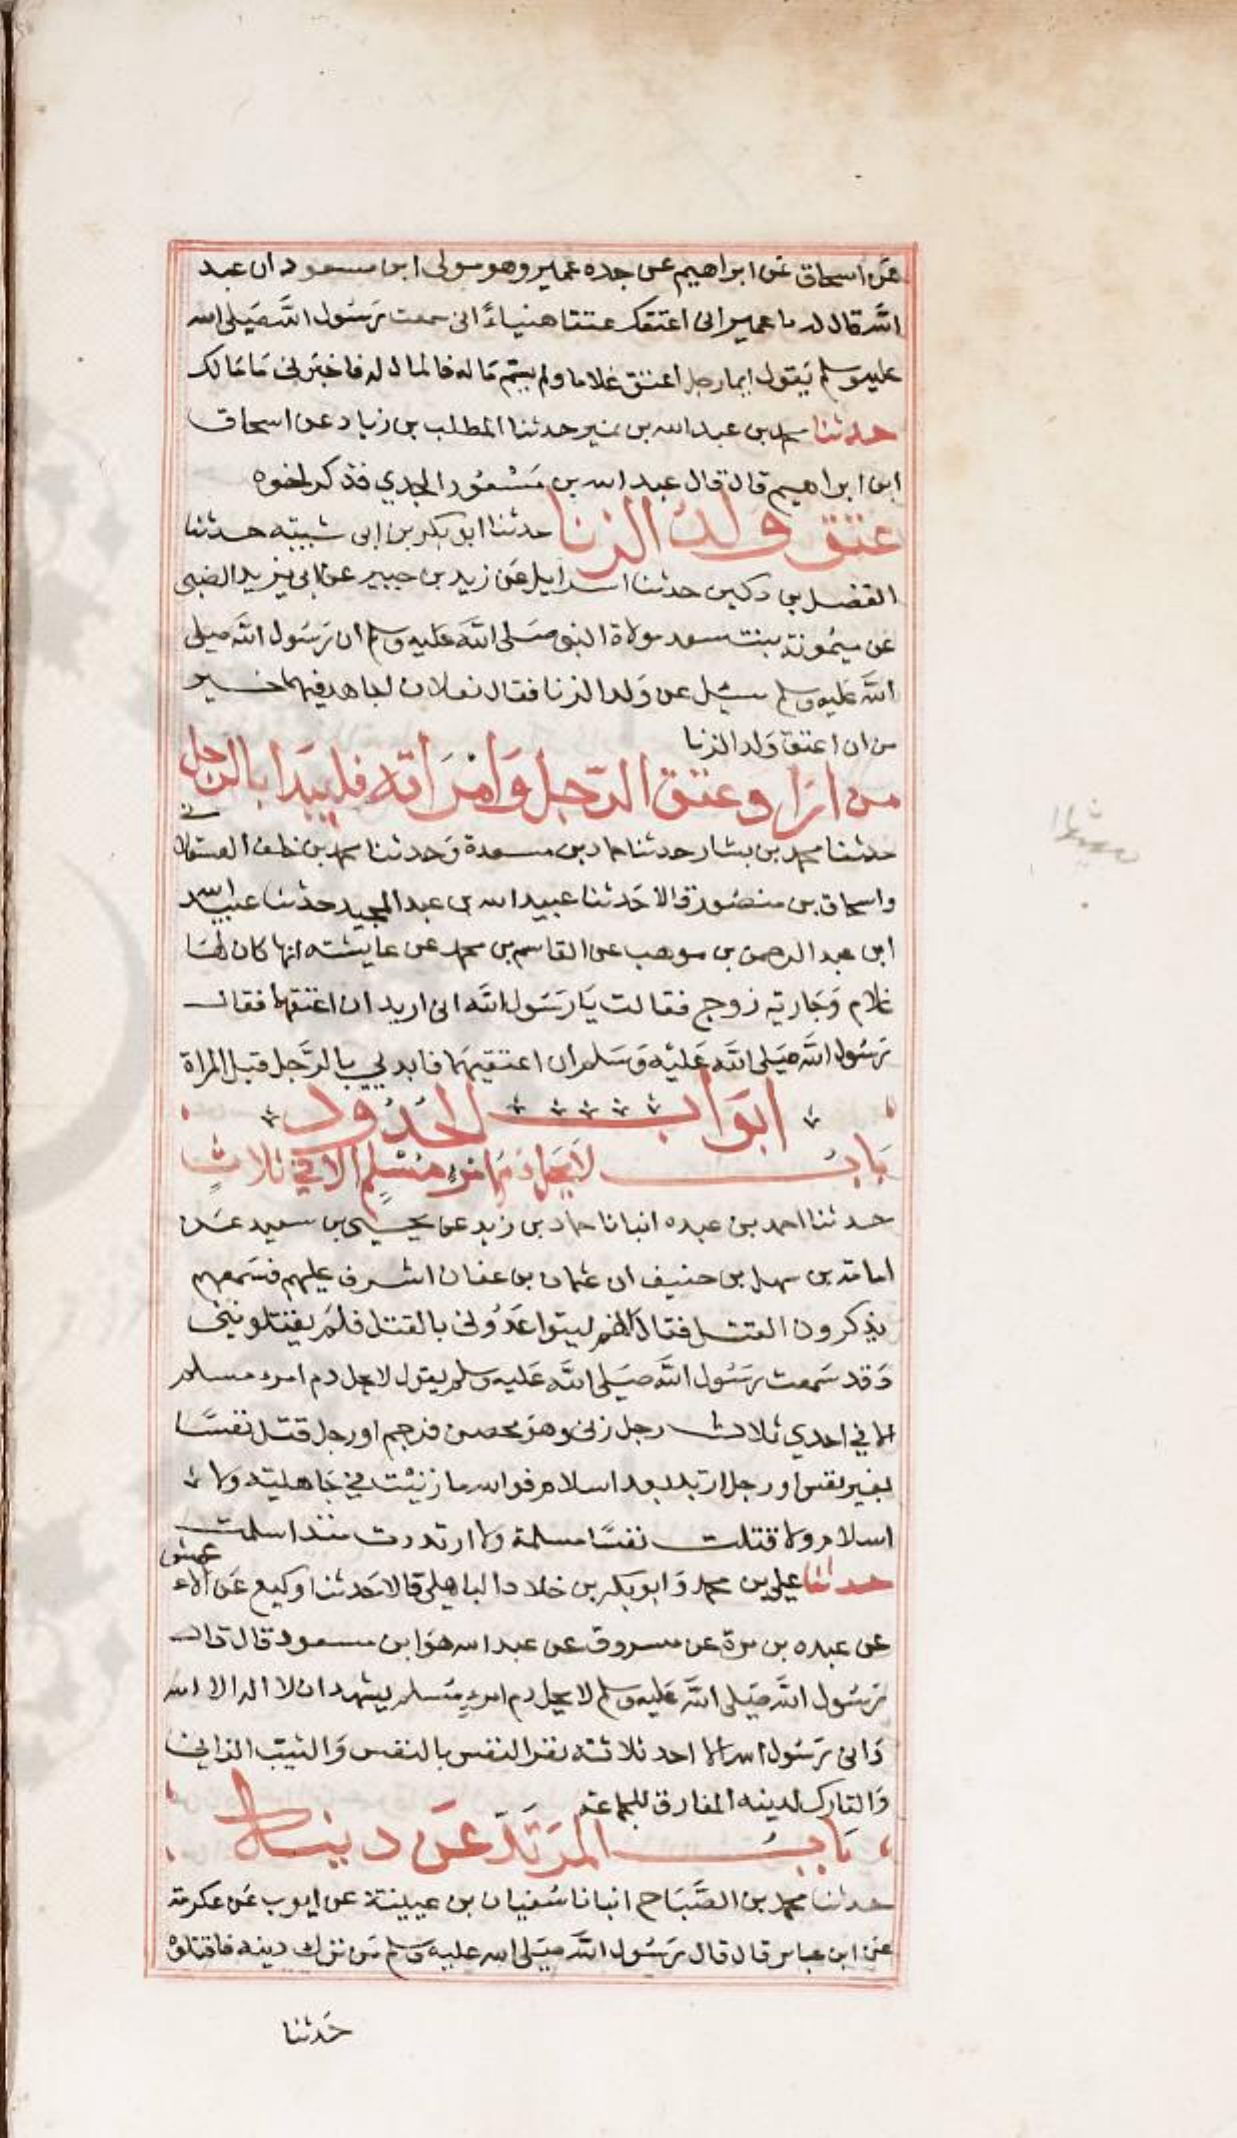 عن اسحاق عن ابراهيم عن جده عمير وهو مولى ابن مسعود ان عبد
الله قال له يا عمير انى اعتقك عتقا هنياءً انى سمعت رسول الله صلى الله
عليه وسلم يقول ايما رجل اعتق غلاما ولم يتم ماله فالمال له فاخبرنى ما مالك
حدثنا محمد بن عبد الله بن نمير حدثنا المطلب بن زياد عن اسحاق
ابن ابراهيم قال قال عبد الله بن مسعود لجدي فذكر نحوه
عتق ولد الزنا حدثنا ابو بكر بن ابى شيبه حدثنا
الفضل بن دكين حدثنا اسرايل عن زيد بن جبير عن ابى يزيد الضبى
عن ميمونة بنت سعد مولاة النبى صلى الله عليه وسلم ان رسول الله صلى
الله عليه وسلم سيل عن ولد الزنا فقال نعلان اجاهد فيهما خير
من ان اعتق ولد الزنا
من اراد عتق الرجل وامراته فليبدا بالرجل
حدثنا محمد بن بشار حدثنا حماد بن مسعدة وحدثنا محمد بن خلف العسقلانى
واسحاق بن منصور قالا حدثنا عبيد الله بن عبد المجيد حدثنا عبيد الله
ابن عبد الرحمن بن موهب عن القاسم بن محمد عن عايشته انها كان لها
غلام وجارية زوج فقالت يا رسول الله انى اريد ان اعتقهما فقال
رسول الله صلى الله عليه وسلم ان اعتقيهما فابدىي بالرجل قبل المراة
ابواب الحدود
باب لا يحل دم امرء مسلم الا في ثلاث
حدثنا احمد بن عبده انبانا حماد بن زيد عن يحيى بن سعيد عن
امامة بن سهل بن حنيف ان عثمان بن عفان اشرف عليهم فسمعهم
يذكرون القتل فقال انهم ليتواعدونى بالقتل فلم يقتلونني
وقد سمعت رسول الله صلى الله عليه وسلم يقول لا يحل دم امرء مسلم
الا في احدي ثلاث رجل زنى وهو محصن فرجم او رجل قتل نفسًا
بغير نفس او رجل ارتد بعد اسلام فوالله ما زنيت في جاهلية ولا
اسلام ولا قتلت نفسًا مسلمة ولا ارتددت منذ اسلمت
حدثنا علي بن محمد وابو بكر بن خلاد الباهلي قالا حدثنا وكيع عن الاعمش
عن عبده بن مرة عن مسروق عن عبد الله هو ابن مسعود قال قال
رسول الله صلى الله عليه وسلم لا يحل دم امرء مسلم يشهد ان لا اله الا الله
وانى رسول الله الا احد ثلاثة نفر النفس بالنفس والثيب الزانى
والتارك لدينه المفارق للجماعة
باب المرتد عن دينه
حدثنا محمد بن الصباح انبانا سفيان بن عيينة عن ايوب عن عكرمة
عن ابن عباس قال قال رسول الله صلى الله عليه وسلم من ترك دينه فاقتلوه
حدثنا